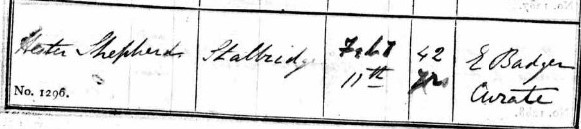 Hester Shepherd Stalbridge Feby 42 E Badger
11th yrs Curate
No. 1296.